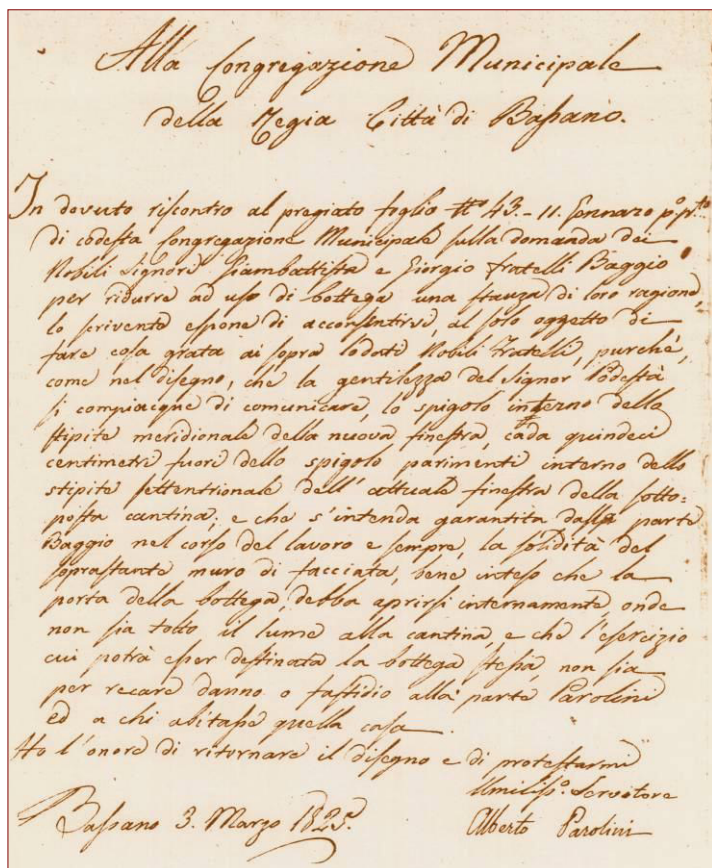 Alla Congregazione Municipale
della Regia Città di Bassano.
In dovuto riscontro al pregiato foglio N.º 43.- 11. Gennaro p.º p.to
di codesta Congregazione Municipale sulla domanda dei
Nobili Signori Giambattista e Giorgio fratelli Baggio
per ridurre ad uso di bottega una stanza di loro ragione,
lo scrivente espone di acconsentirvi, al solo oggetto di
fare cosa grata ai sopra lodati Nobili Fratelli, purché,
come nel disegno, che la gentilezza del Signor Podestà
si compiacque di comunicare, lo spigolo interno della
stipite meridionale della nuova finestra, cada quindeci
centimetri fuori dello spigolo parimenti interno dello
stipite settentrionale dell' attuale finestra della sotto=
posta cantina; e che s'intenda garantita dalla parte
Baggio nel corso del lavoro e sempre, la solidità del
soprastante muro di facciata, bene inteso che la
porta della bottega, debba aprirsi internamente, onde
non sia tolto il lume alla cantina, e che l'esercizio
cui potrà esser destinata la bottega stessa, non sia
per recare danno o fastidio alla parte Parolini
ed a chi abitasse quella casa.
Ho l'onore di ritornare il disegno e di protestarmi
Umiliss.º Servitore
Bassano 3. Marzo 1825.
Alberto Parolini